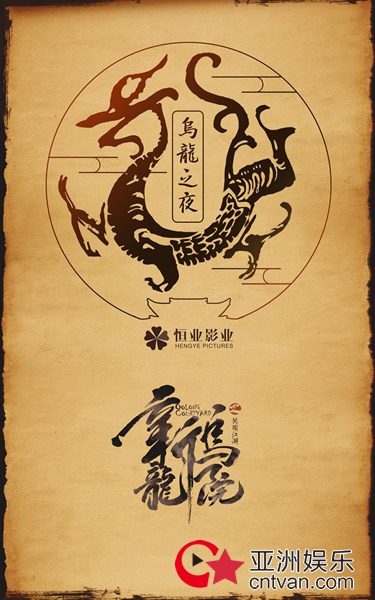 烏龍之夜
恒业影业
HENGYE PICTURES
OOLONG
COURTYARD
新烏龍院
亚洲娱乐
cntvan.com